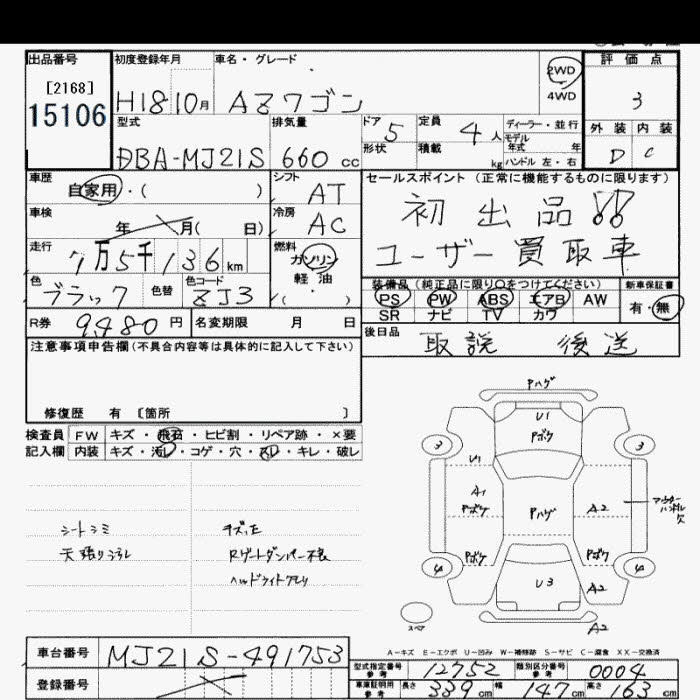 出品番号
[2168]
15106
初度登録年月
H18 10月
車名・グレード
AZワゴン
2WD
4WD
評価点
3
外装 内装
D C
型式
DBA-MJ21S
排気量
660 cc
ドア 5
形状
定員 4人
積載 kg
ディーラー・並行
モデル
年式 年
ハンドル 左・右
車歴
自家用・( )
シフト
AT
セールスポイント (正常に機能するものに限ります)
初出品!!
ユーザー買取車
車検
年 月( 日)
冷房
AC
走行
7万5千136km
燃料
ガソリン
軽油
( )
色
ブラック
色替
色コード
ZJ3
装備品(純正品に限り○をつけてください)
PS PW ABS エアB AW
SR ナビ TV カワ
新車保証書
有・無
R券 9,480円
名変期限 月 日
後日品
取説 後送
注意事項申告欄(不具合内容等は具体的に記入して下さい)
修復歴 有 〔箇所 〕
検査員
記入欄
FW キズ・飛石・ヒビ割・リペア跡・×要
内装 キズ・汚レ・コゲ・穴・スレ・キレ・破レ
シートシミ
天張り汚れ
キズ凹
Rゲートダンパー不良
ヘッドライトクモリ
Pハゲ
U1
Pボケ
3
3
U1
A1
Pボケ
Pハゲ
A2
アウターハンドル欠
Pボケ
Pボケ
4
4
U3
A2
スペア
A2
A-キズ E-エクボ U-凹み W-補修跡 S-サビ C-腐食 XX-交換済
車台番号 MJ21S-491753
登録番号
型式指定番号
参考
12752
類別区分番号
参考
0004
車庫証明用
参考
長さ 339cm
幅 147cm
高さ 63cm